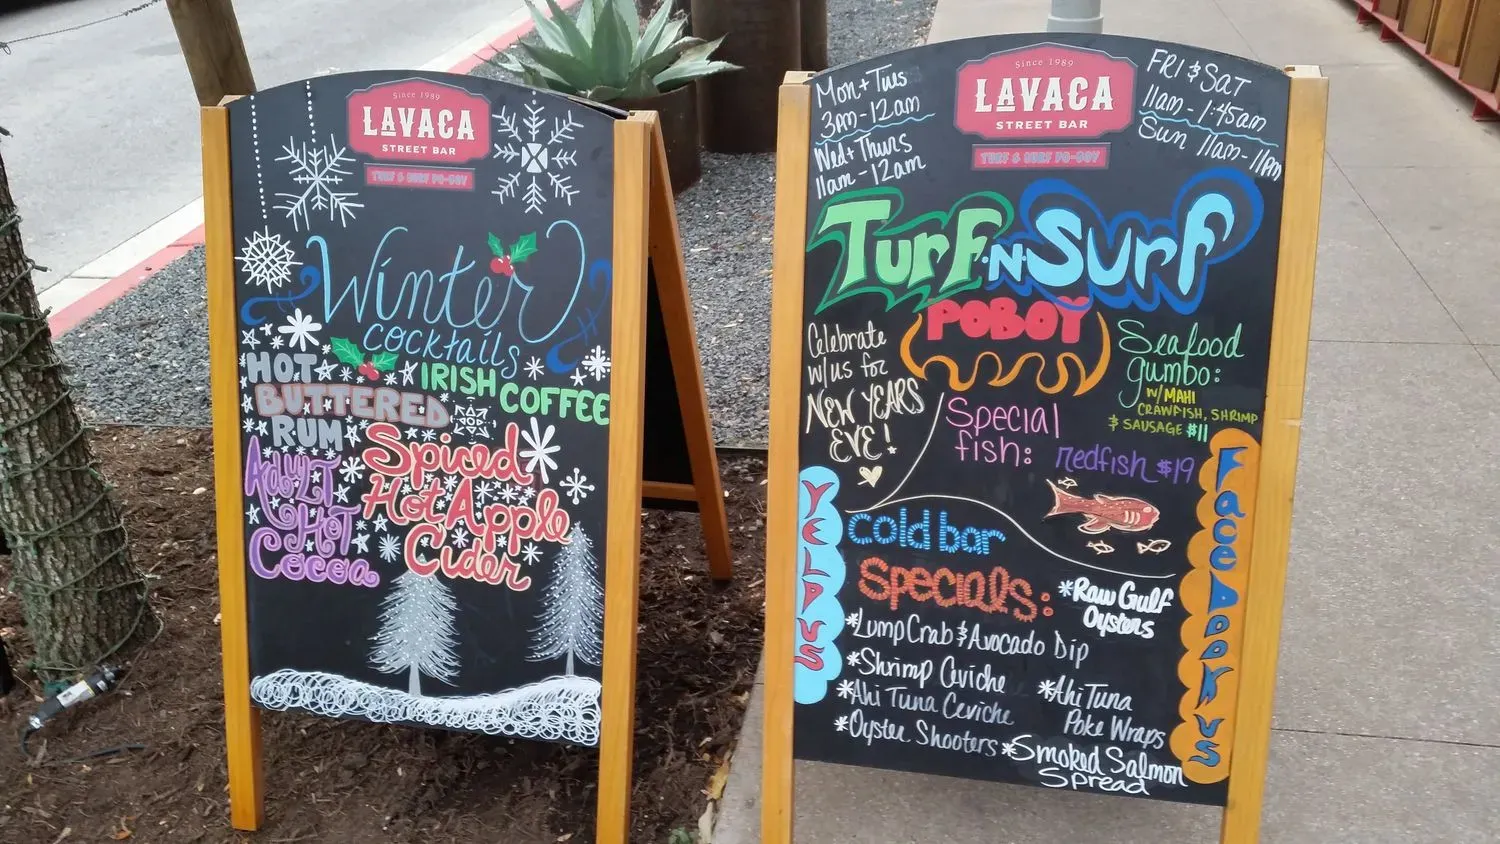 Since 1989
LAVACA
STREET BAR
TURF & SURF PO-BOY
Winter
cocktails
HOT
BUTTERED
RUM
IRISH
COFFEE
Adult
Hot
Cocoa
Spiced
Hot Apple
Cider
Mon + Tues
3pm - 12am
Wed + Thurs
11am - 12am
Since 1989
LAVACA
STREET BAR
TURF & SURF PO-BOY
FRI & SAT
11am - 1:45am
Sun 11am - 11pm
Turf-N-Surf
POBOY
Celebrate
w/us for
NEW YEARS
EVE!
Seafood
gumbo:
w/ MAHI
CRAWFISH, SHRIMP
& SAUSAGE $11
Special
fish: redfish $19
YELP US
cold bar
Specials:
*Raw Gulf
Oysters
*Lump Crab & Avocado Dip
*Shrimp Ceviche
*Ahi Tuna Ceviche
*Oyster Shooters
*Ahi Tuna
Poke Wraps
*Smoked Salmon
Spread
Facebook us